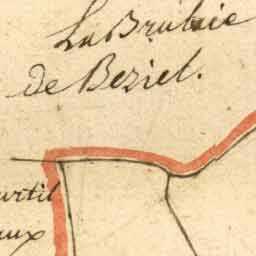 La Brulaie
de Beziel.
urtil
aux